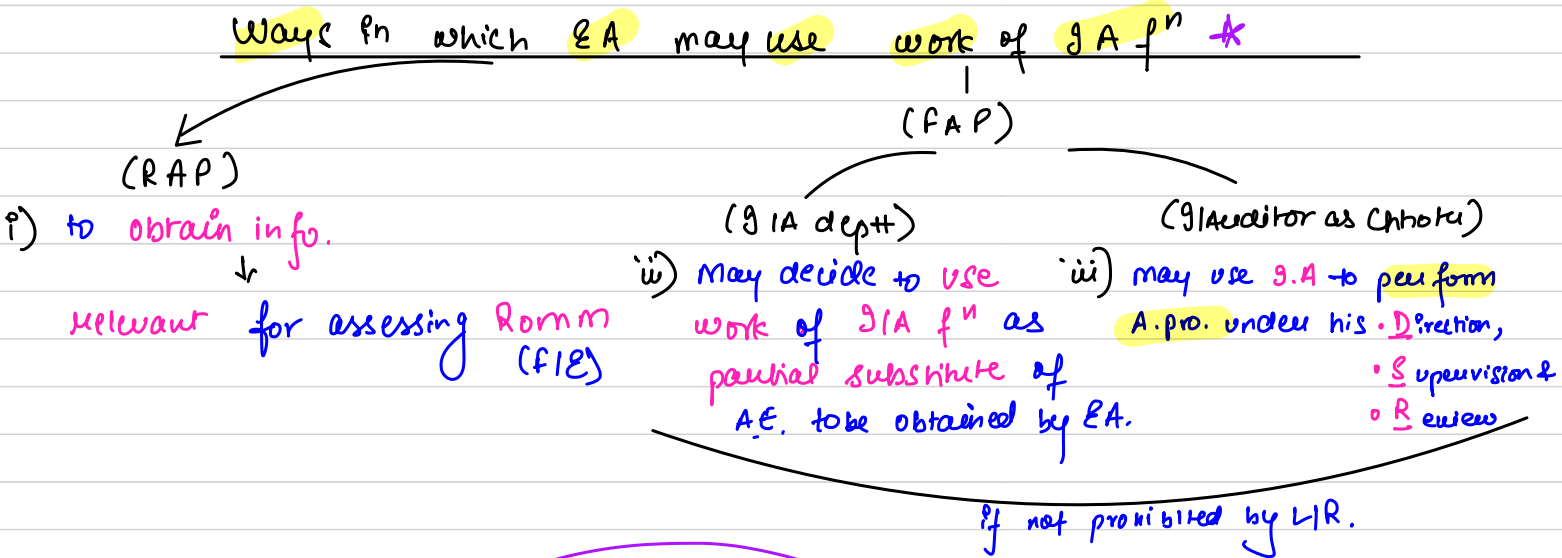 Ways in which EA may use work of IA fⁿ *
(FAP)
(RAP)
i) to obtain info.
↓
relevant for assessing Romm
(F/E)
(I/A deptt)
ii) May decide to use
work of I/A fⁿ as
partial substitute of
A.E. to be obtained by EA.
(I/Auditor as Chhotu)
iii) may use I.A to perform
A.pro. under his • Direction,
• Supervision &
• Review
if not prohibited by L/R.